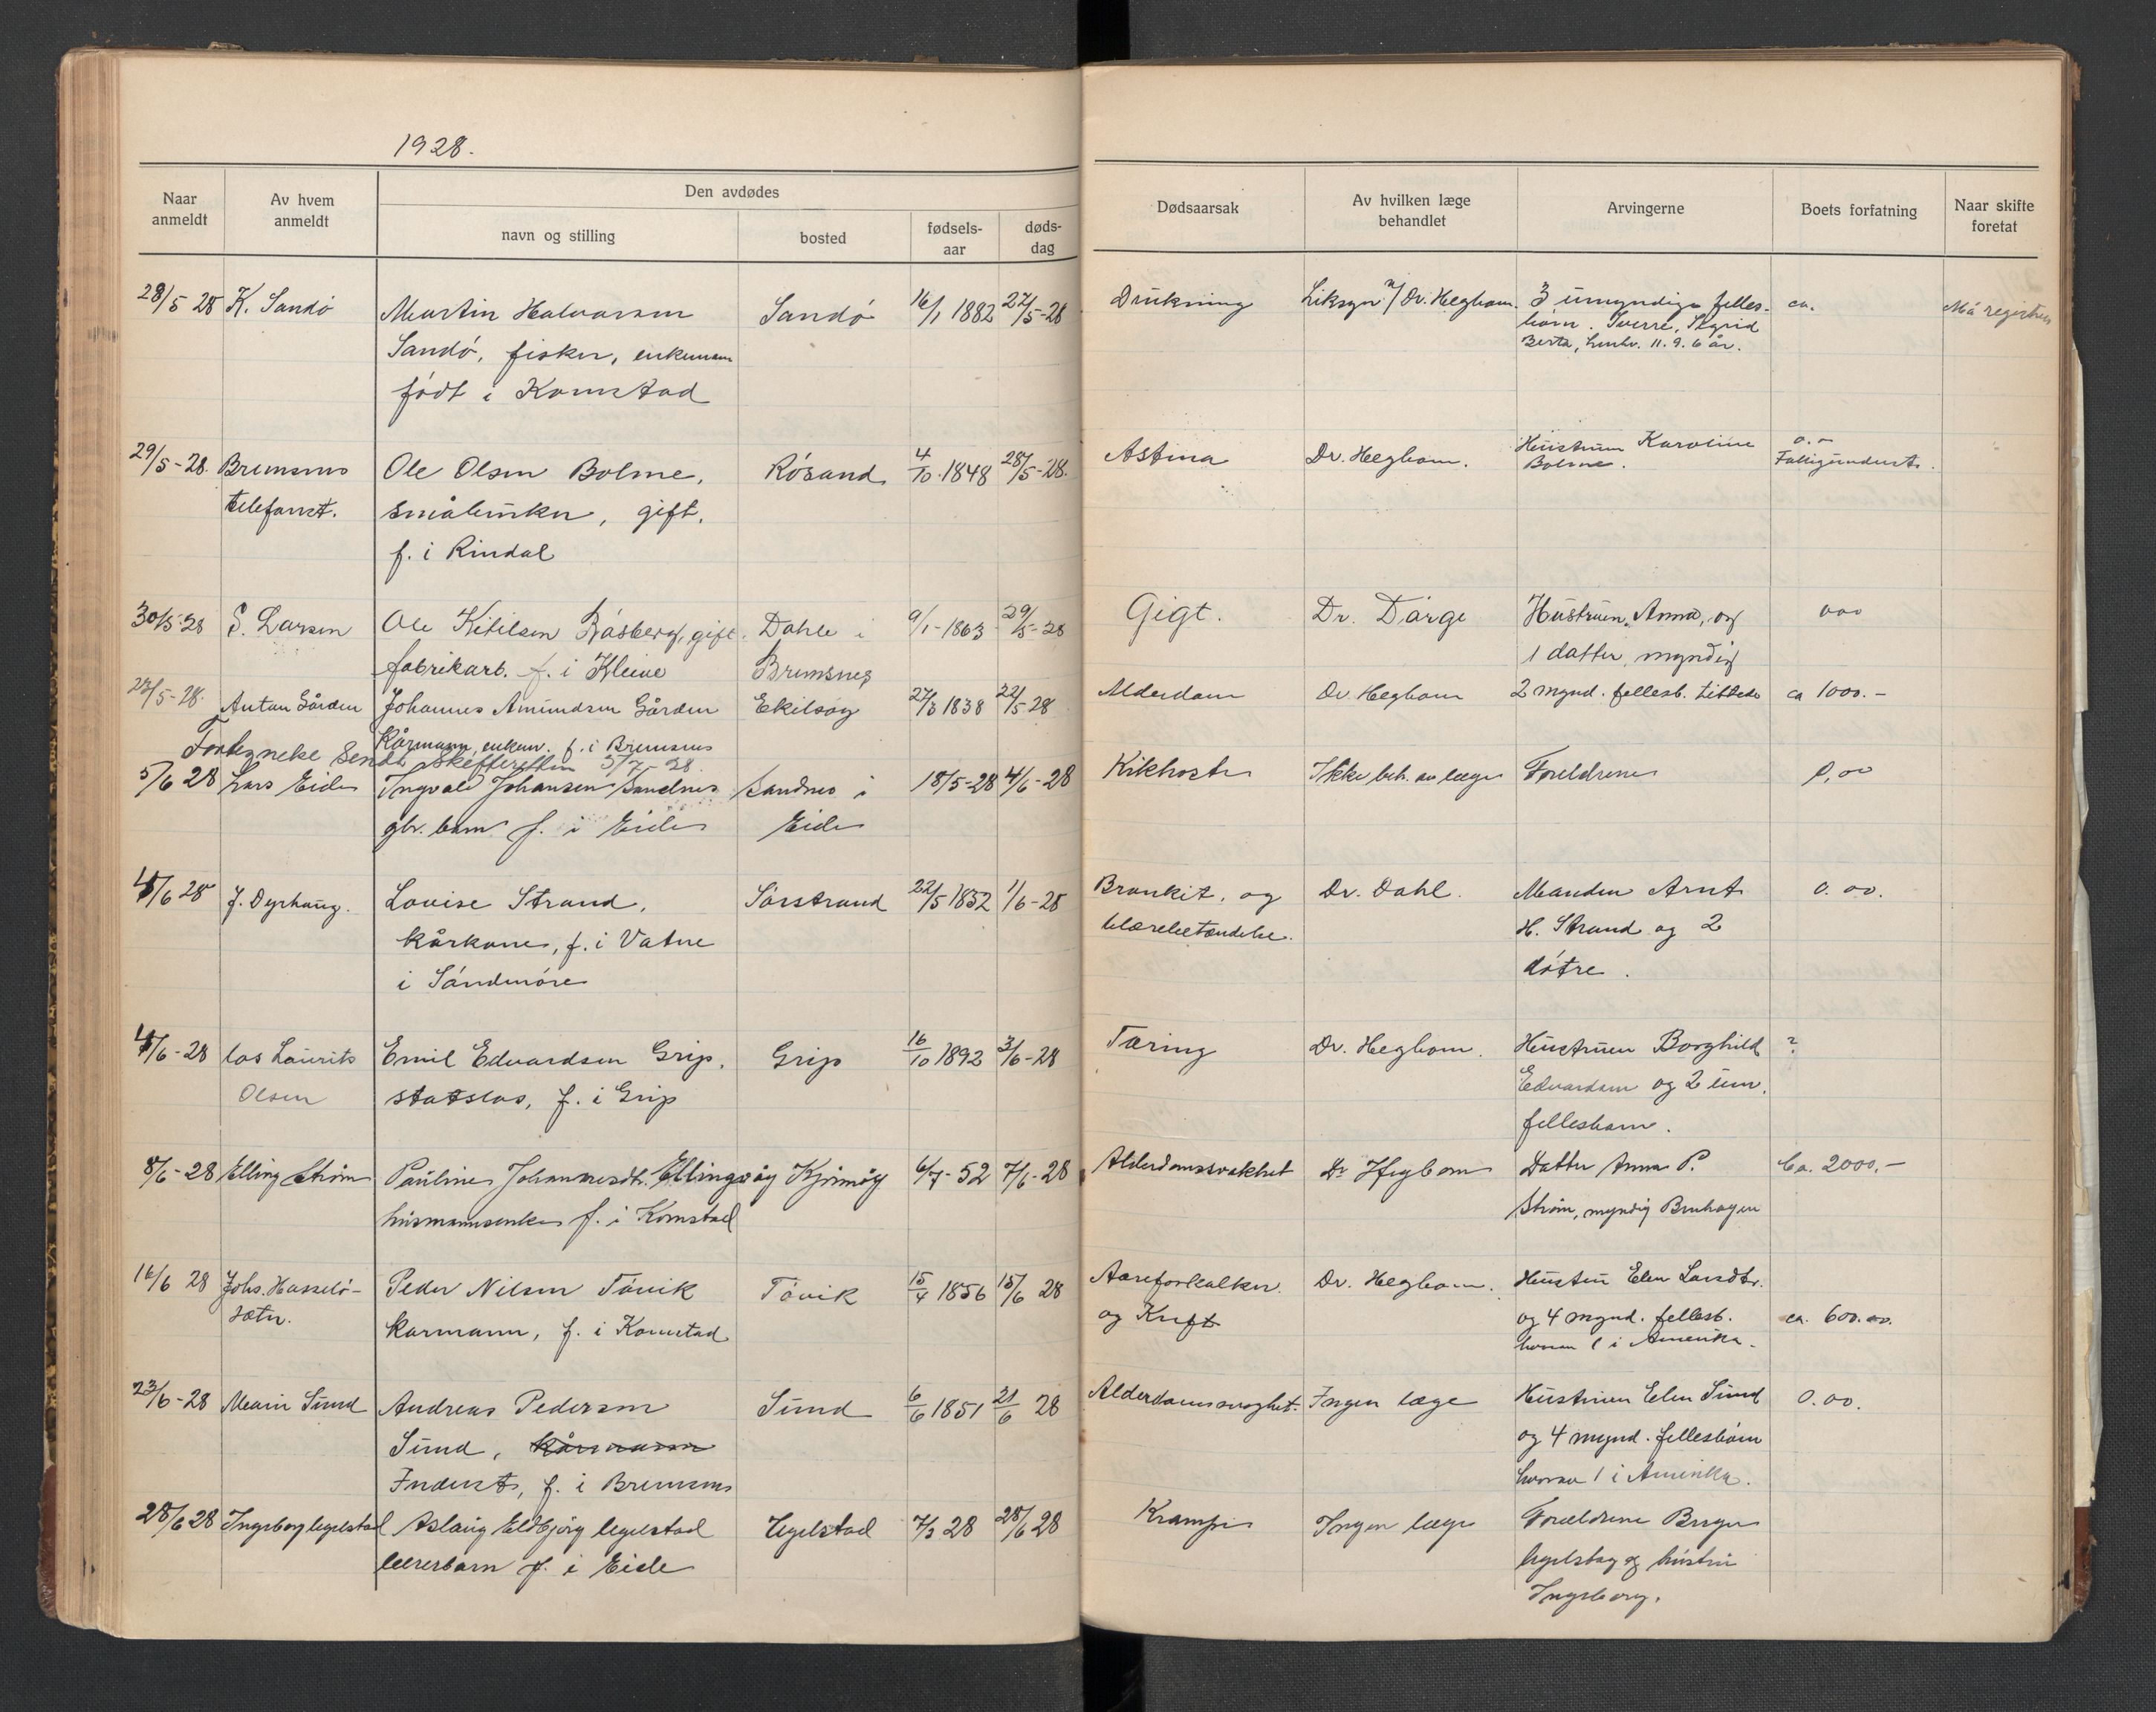 1928.
Naar anmeldt
Av hvem anmeldt
Den avdødes
navn og stilling
bosted
fødsels-aar
døds-dag
Dødsaarsak
Av hvilken læge behandlet
Arvingerne
Boets forfatning
Naar skifte foretat
28/5 28 K. Sandø Martin Halvorsen Sandø 16/1 1882 27/5-28 Drukning Liksyn v/ Dr. Hegbom. 3 umyndige felles- ca. Må registreres
Sandø, fisker, enkemann børn. Sverre, Sigrid
født i Kornstad Berta, henhv. 11. 9. 6 år.
29/5-28. Bremsnes Ole Olsen Bolme, Røsand 4/10. 1848 28/5-28. Astma Dr. Hegbom. Hustruen Karoline 0.-
telefonst. småbruker, gift, Bolme. Fattigunderst.
f. i Rindal
30/5-28 S. Larsen Ole Ketilsen Råsberg, gift. Dahle i 9/1-1863 29/5-28 Gigt. Dr. Dørge Hustruen, Anna, og 000
fabrikarb. f. i Kleive Bremsnes 1 datter, myndig
23/5-28. Anton Gården Johannes Amundsen Gården Ekilsøy 27/3 1838 22/5 28 Alderdom Dr Hegbom 2 mynd. fellesb. tilstede ca 1000.-
Kårmann, enkem. f. i Bremsnes
Fortegnelse sendt skifteretten 5/7-28.
5/6 28 Lars Eide Ingvald Johansen Sandnes Sandnes i 18/5-28 4/6-28 Kikhoste Ikke beh. av læge Foreldrene 0,00
gbr. barn f. i Eide Eide
4/6 28 J. Dyrhaug. Lovise Strand, Sørstrand 22/5 1852 1/6-28 Bronkit, og Dr. Dahl. Manden Arnt 0.00.
kårkone, f. i Vatne blærebetændelse. H. Strand og 2
i Søndmøre døtre.
4/6-28 los Laurits Emil Edvardsen Grip, Grip 16/10 1892 3/6-28 Tæring Dr. Hegbom. Hustruen Borghild ?
Olsen statslos, f. i Grip Edvardsen og 2 um.
fellesbarn.
8/6-28 Elling Strøm Pauline Johannesdt. Ellingvåg Kjönnöy 6/7-52 7/6-28 Alderdomssvakhet Dr Hegbom Datter Anna P. Ca. 2000.-
husmannsenke f. i Kornstad Strøm, myndig Bruhagen
16/6 28 Johs. Hasselø- Peder Nilsen Tøvik Tøvik 15/4 1856 15/6 28 Aareforkalkn. Dr. Hegbom. Hustru Elen Larsdtr.
sætr. karmann, f. i Kornstad og Kreft og 4 mynd. fellesb. ca. 600.00.
hvorav 1 i Amerika.
23/6-28 Sund Andreas Pedersen Sund 6/6 1851 21/6 28 Alderdomssvaghet. Ingen læge Hustruen Elen Sund 0.00.
Sund, Kårmann og 4 mynd. fellesbørn
Inderst, f. i Bremsnes hvorav 1 i Amerika.
28/6 28 Ingeborg Ugelstad Aslaug Eldbjørg Ugelstad Ugelstad 7/3 28 28/6 28 Krampe Ingen læge Forældrene Birger
lærerbarn f. i Eide og hustru
Ingeborg.